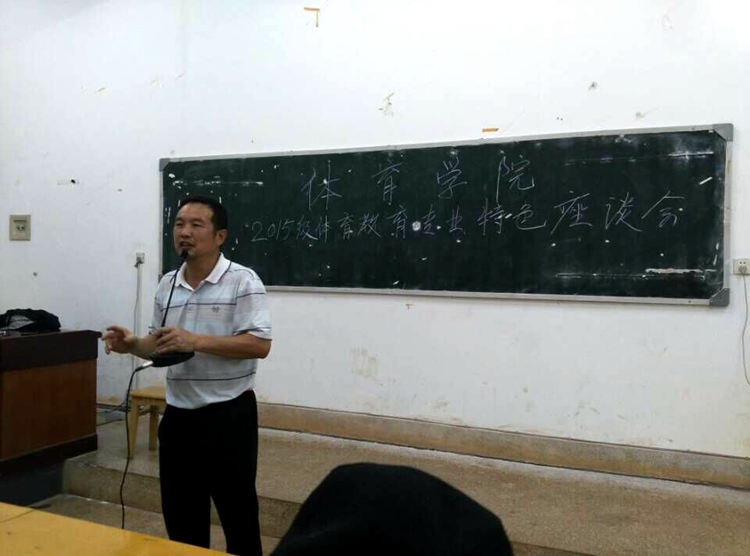 体育学院
2015级体育教育专业特色座谈会